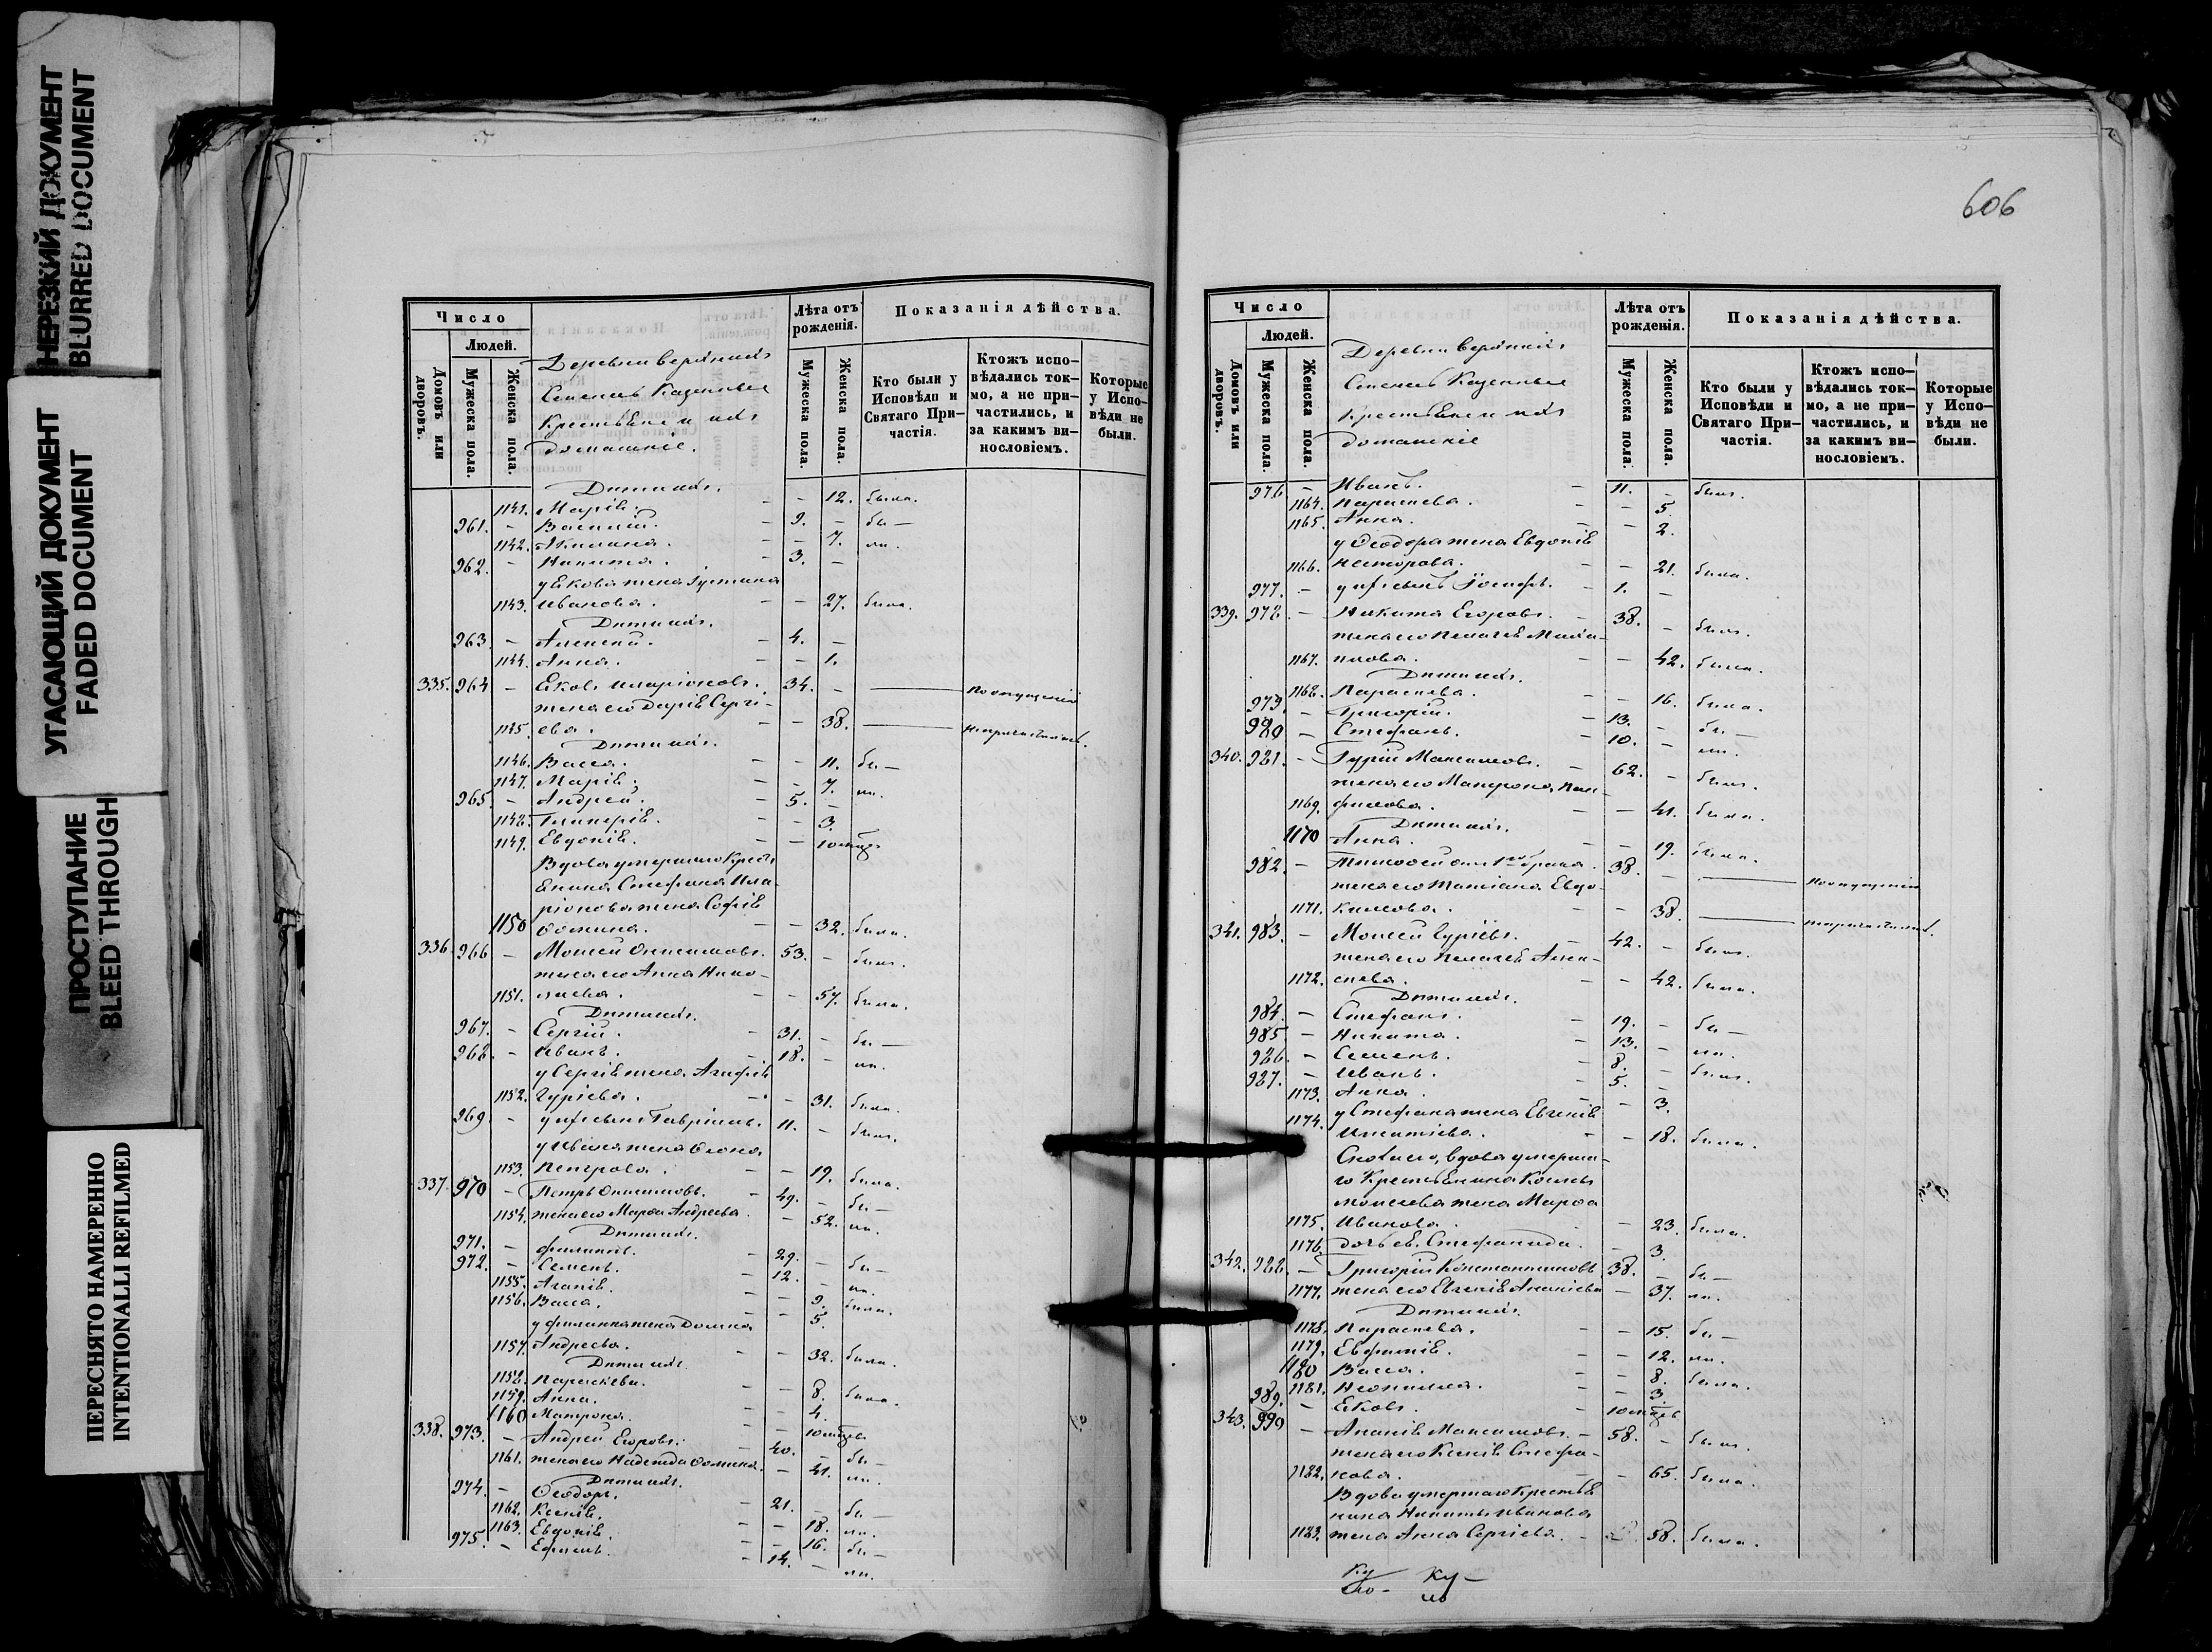 НЕРЕЗКИЙ ДОКУМЕНТ
BLURRED DOCUMENT
УГАСАЮЩИЙ ДОКУМЕНТ
FADED DOCUMENT
ПРОСТУПАНИЕ
BLEED THROUGH
ПЕРЕСНЯТО НАМЕРЕННО
INTENTIONALLI REFILMED
Число
Людей.
Домовъ или дворовъ.
Мужеска пола.
Женска пола.
Деревни
Казенные
Крестьяне и ихъ
домашніе.
Лѣта отъ рожденія.
Мужеска пола.
Женска пола.
Показанія дѣйства.
Кто были у Исповѣди и Святаго При-частія.
Ктожъ испо-вѣдались ток-мо, а не при-частились, и за какимъ ви-нословіемъ.
Которые у Испо-вѣди не были.
Дѣти ихъ.
1141. Марія. - - 12. была.
961. - Василій. - 9. - бы-
1142. Акилина. - - 7. ли.
962. - Никита. - 3. -
у Якова жена Іустина
1143. Иванова. - - 27. была.
Дѣти ихъ.
963. - Алексѣй. - 4. -
1144. Анна. - - 1.
335. 964. - Яковъ Иларіоновъ. 34. - По опущенію
жена его Дарія Сергѣ-
1145. ева. - - 38. не причастились.
Дѣти ихъ.
1146. Васса. - - 11. бы-
1147. Марія. - - 7. ли.
965. - Андрей. - 5. -
1148. Гликерія. - - 3.
1149. Евдокія. - - 10 мѣсяц.
Вдова умершаго Крест
янина Стефана Ила-
ріонова жена Софія
1150 Ѳомина. - - 32. была.
336. 966 - Моисей Онисимовъ. 53. - былъ.
жена его Анна Нико-
1151. лаева. - - 57. была.
Дѣти ихъ.
967. - Сергій. - 31. - бы-
968. - Иванъ. - 18. - ли.
у Сергія жена Агафія
1152. Гуріева. - - 31. была.
969. - у нихъ сынъ Гавріилъ. 11. - былъ.
у Ивана жена
1153. Петрова. - - 19. была.
337. 970 - Петръ Онисимовъ. - 49. - бы-
1154. жена его Марѳа Андреева. - 52. ли.
Дѣти ихъ.
971. - Филиппъ. - 29. - бы-
972. - Семенъ. - 12. - ли.
1155. Агапія. - - 9. была.
1156. Васса. - - 5.
у Филиппа жена Домна
1157. Андреева. - - 32. была.
Дѣти ихъ.
1158. Параскева. - - 8. была.
1159. Анна. - - 4.
1160 Матрона. - - 10 мѣсяц.
338. 973. - Андрей Егоровъ. - 40. - бы-
1161. жена его Надежда Ѳомина. - 41. ли.
Дѣти ихъ.
974. - Ѳеодоръ. - 21. - бы-
1162. Ксенія. - - 18. ли.
1163. Евдокія. - - 16. бы-
975. - Ефимъ. - 14. - ли.
606
Число
Людей.
Домовъ или дворовъ.
Мужеска пола.
Женска пола.
Деревни
Казенные
Крестьяне и ихъ
домашніе
Лѣта отъ рожденія.
Мужеска пола.
Женска пола.
Показанія дѣйства.
Кто были у Исповѣди и Святаго При-частія.
Ктожъ испо-вѣдались ток-мо, а не при-частились, и за какимъ ви-нословіемъ.
Которые у Испо-вѣди не были.
976 - Иванъ. - 11. - былъ.
1164. Параскева. - - 5.
1165. Анна. - - 2.
у Ѳеодора жена Евдокія
1166. Несторова. - - 21. была.
977. - у нихъ сынъ Іосифъ. - 1. -
339. 978 - Никита Егоровъ. - 38. - былъ.
жена его Пелагея Миха-
1167. илова. - - 42. была.
Дѣти ихъ.
1168. Параскева. - - 16. была.
979. - Григорій. - 13. - бы-
980 - Стефанъ. - 10. - ли.
340. 981. - Гурій Максимовъ. - 62. - былъ.
жена его Матрона Пан-
1169. филова. - - 41. была.
Дѣти ихъ.
1170 Анна. - - 19. была.
982. - Тимоѳей отъ 1го брака. 38. - По опущенію
жена его Татіана Евдо-
1171. кимова. - - 38. не причастились.
341. 983. - Моисей Гуріевъ. - 42. - былъ.
жена его Пелагея Алек-
1172. сѣева. - - 42. была.
Дѣти ихъ.
984. - Стефанъ. - 19. - бы-
985 - Никита. - 13. - ли.
986. - Семенъ. - 8. - былъ.
987. - Иванъ. - 5. -
1173. Анна. - - 3.
у Стефана жена Евгенія
1174. Игнатіева. - - 18. была.
вдова умерша-
го Крестьянина Козмы
Моисеева жена Марѳа
1175. Иванова. - - 23. была.
1176. дочь ея Стефанида. - 3.
342. 988. - Григорій Константиновъ. 38. - бы-
1177. жена его Евгенія Ананіева - 37. ли.
Дѣти ихъ.
1178. Параскева. - - 15. бы-
1179. Евфимія. - - 12. ли.
1180 Васса. - - 8. была.
1181. Неонилла. - - 3.
989. - Яковъ. - 10 мѣсяц
343. 990 - Ананія Максимовъ. - 58. - былъ.
жена его Ксенія Стефа-
1182. нова. - - 65. была.
Вдова умершаго Крестья
нина Никиты Иванова
1183. жена Анна Сергіева. - 58. была.